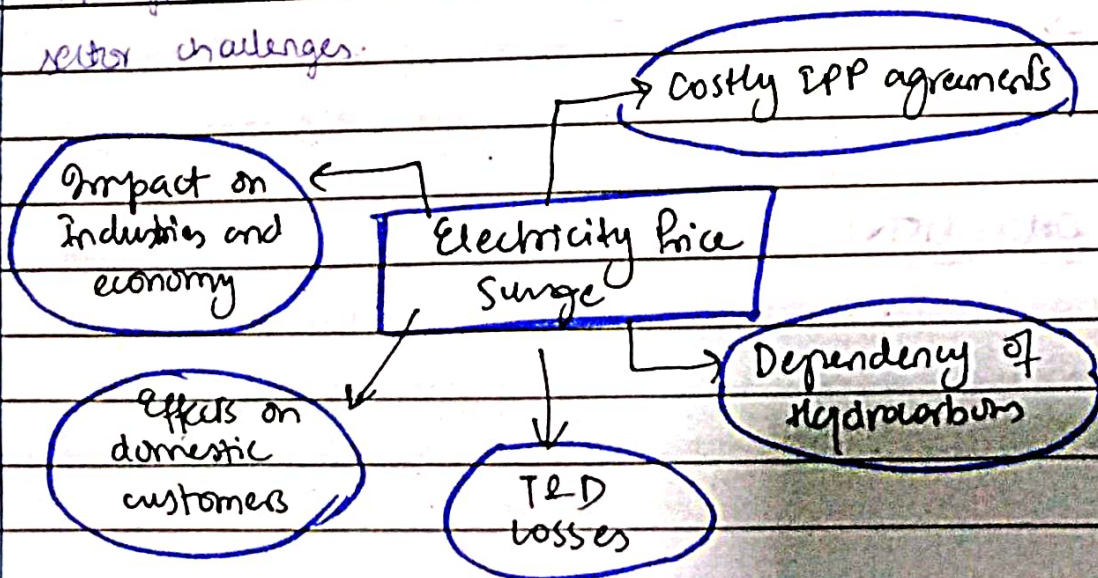 sector challenges.
Costly IPP agreements
Impact on
Industries and
economy
Electricity Price
Surge
Dependency of
Hydrocarbons
Effects on
domestic
customers
T&D
Losses